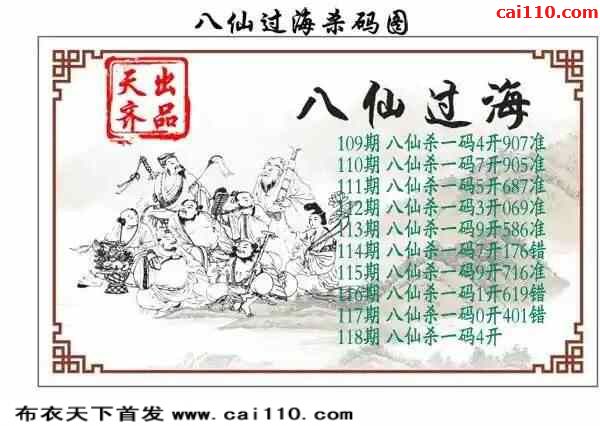 八仙过海杀码图
cai110.com
天齐出品
八仙过海
109期 八仙杀一码4开907准
110期 八仙杀一码7开905准
111期 八仙杀一码5开687准
112期 八仙杀一码3开069准
113期 八仙杀一码9开586准
114期 八仙杀一码7开176错
115期 八仙杀一码9开716准
116期 八仙杀一码1开619错
117期 八仙杀一码0开401错
118期 八仙杀一码4开
布衣天下首发 www.cai110.com